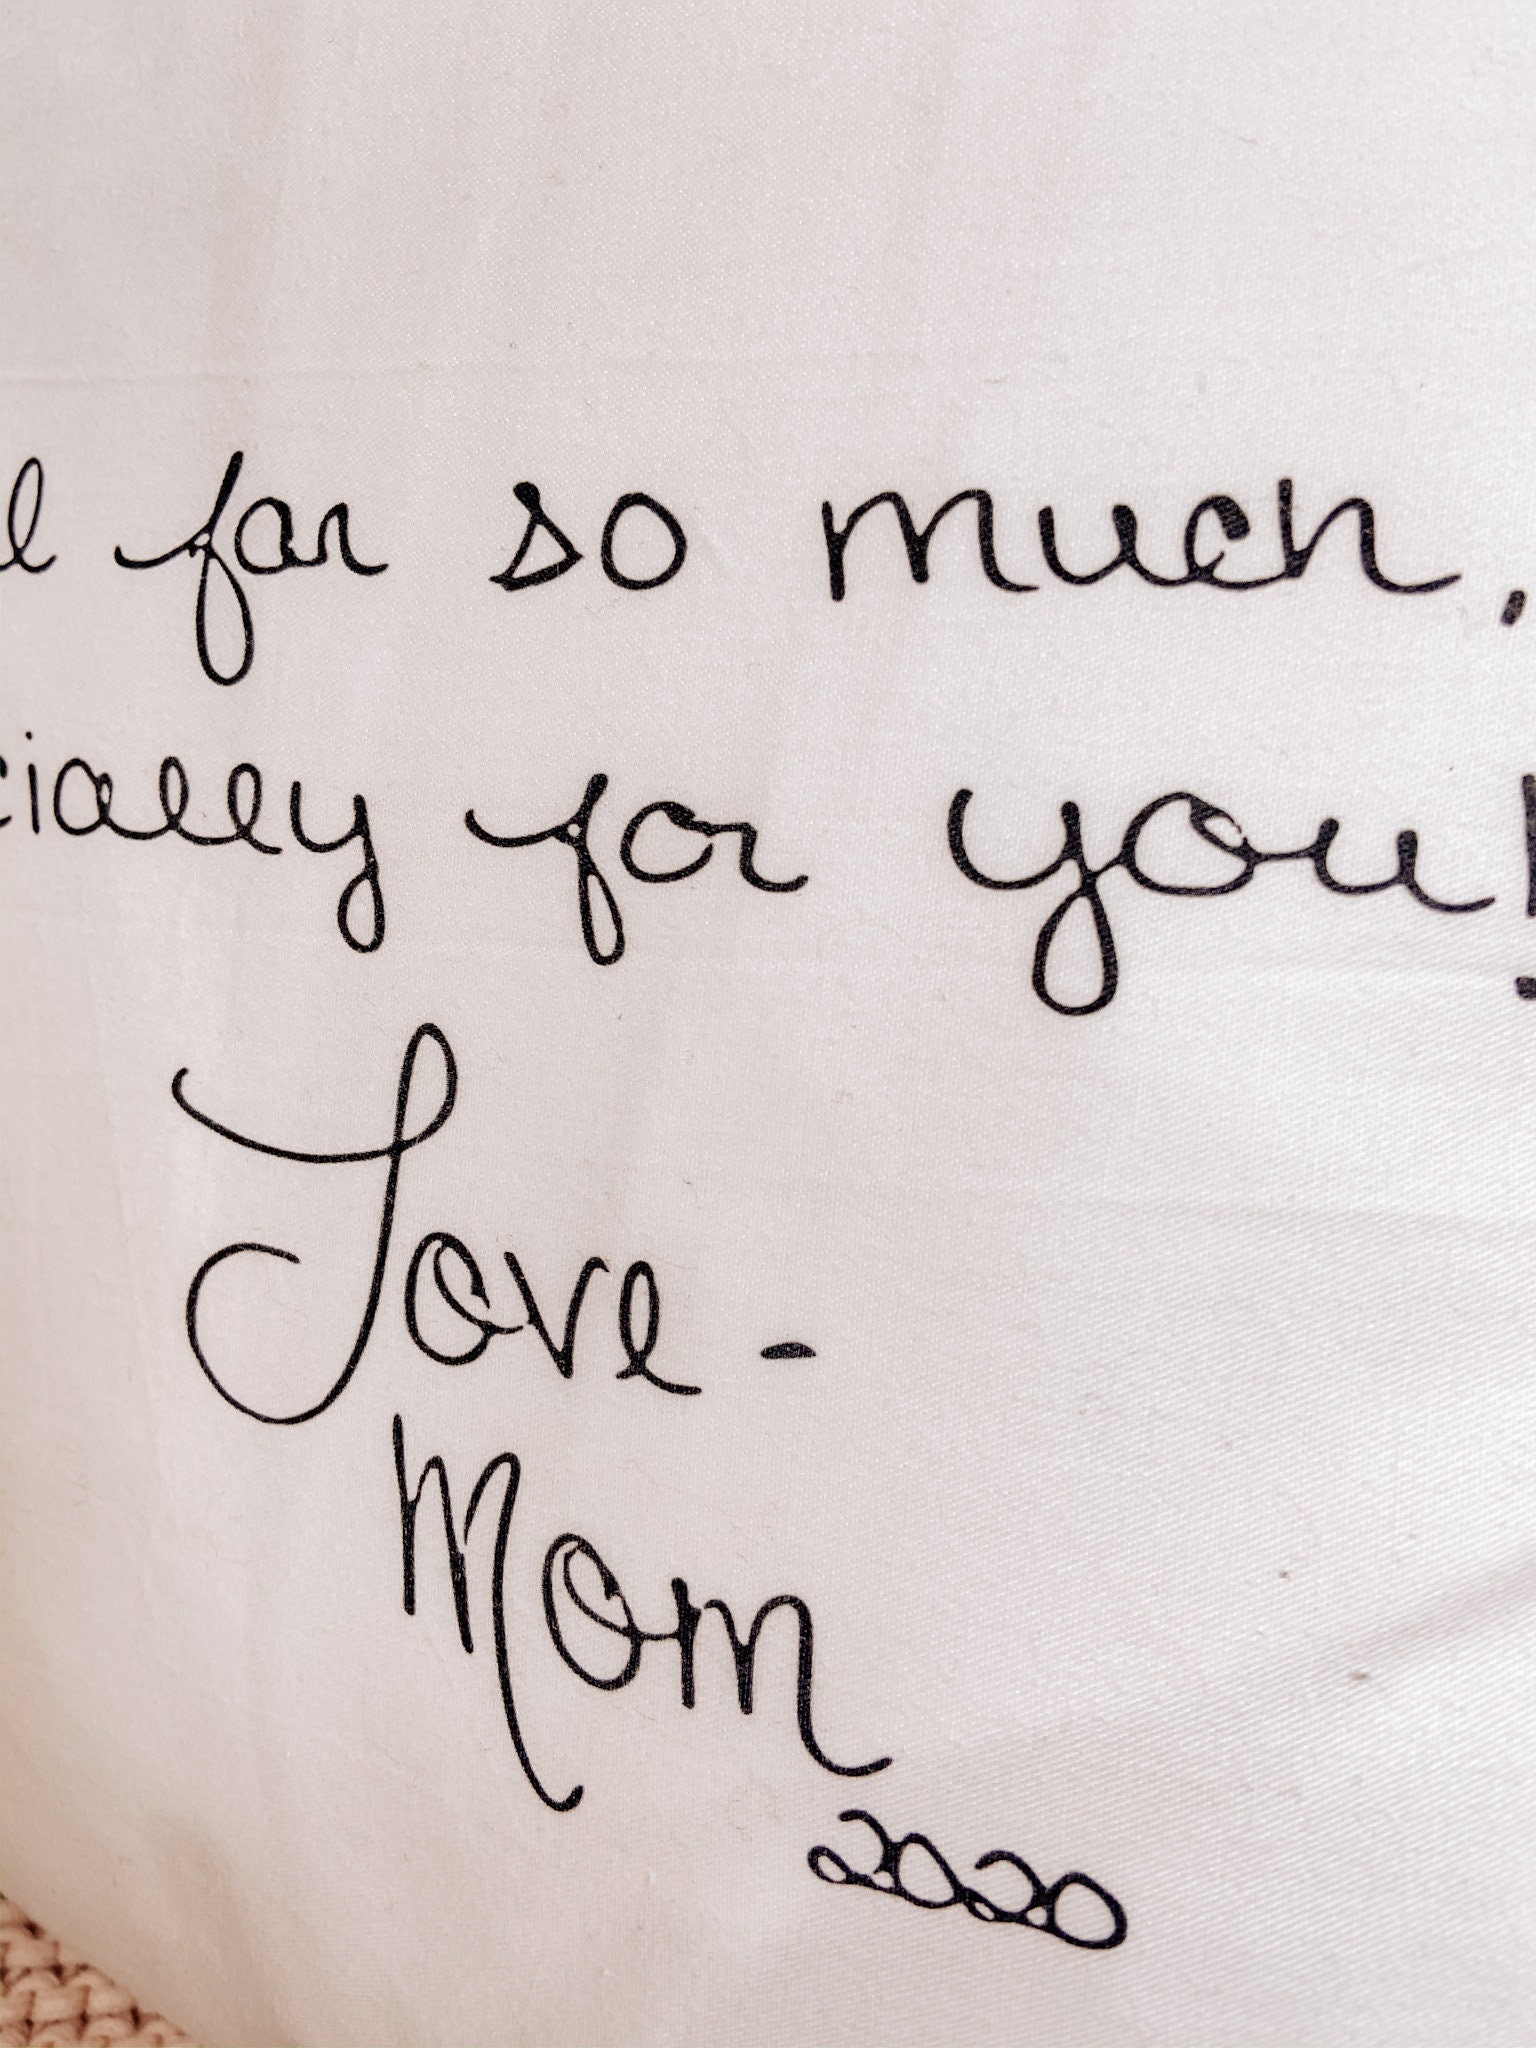 for so much,
for you!
Love -
Mom
2020